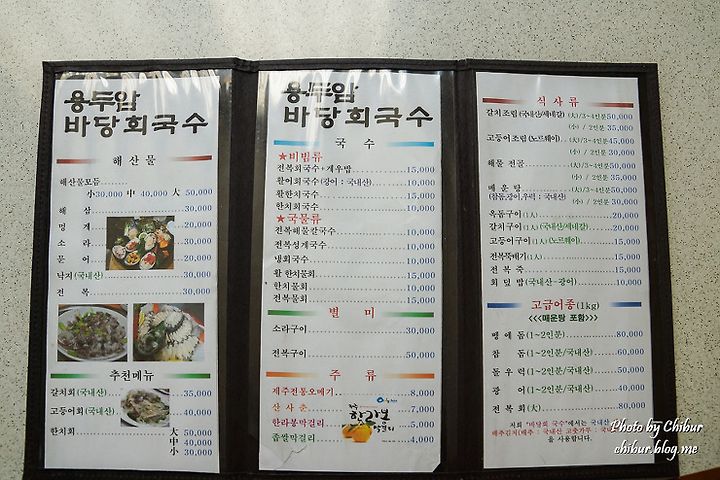 용두암
바당회국수
해 산 물
해산물모듬
小30,000 中 40,000 大 50,000
해 삼 30,000
멍 게 20,000
소 라 30,000
문 어 20,000
낙지(국내산) 30,000
전 복 30,000
추천메뉴
갈치회(국내산) 35,000
고등어회(국내산) 40,000
한치회 大 50,000
中 40,000
小 30,000
용두암
바당회국수
국 수
★비빔류
전복회국수+게우밥 15,000
활어회국수(광어 : 국내산) 10,000
활한치국수 15,000
한치회국수 10,000
★국물류
전복해물칼국수 10,000
전복성게국수 10,000
냉회국수 10,000
활 한치물회 15,000
한치물회 10,000
전복물회 15,000
별 미
소라구이 30,000
전복구이 50,000
주 류
제주전통오메기 8,000
산 사 춘 7,000
한라봉막걸리 5,000
좁쌀막걸리 4,000
식 사 류
갈치조림(국내산/세네갈) (大)/3~4인분50,000
(小) / 2인분 35,000
고등어조림(노르웨이) (大)/3~4인분45,000
(小) / 2인분 30,000
해물 전골 (大)/3~4인분50,000
(小) / 2인분 35,000
매 운 탕 (大)/3~4인분35,000
(참돔,광어,우럭 : 국내산) (小) / 2인분 30,000
옥돔구이(1人) 20,000
갈치구이(1人)(국내산/세네갈) 20,000
고등어구이(1人)(노르웨이) 10,000
전복뚝배기(1人) 15,000
전 복 죽 15,000
회 덮 밥(국내산-광어) 10,000
고급어종(1kg)
<<<매운탕 포함>
뱅 에 돔(1~2인분) 80,000
참 돔(1~2인분/국내산) 60,000
돌 우 럭(1~2인분/국내산) 50,000
광 어(1~2인분/국내산) 40,000
전 복 회(大) 80,000
저희 "바당회 국수"에서는 국내산
배추김치(배추 : 국내산 고춧가루 :
을 사용합니다.
Photo by Chibur
chibur.blog.me